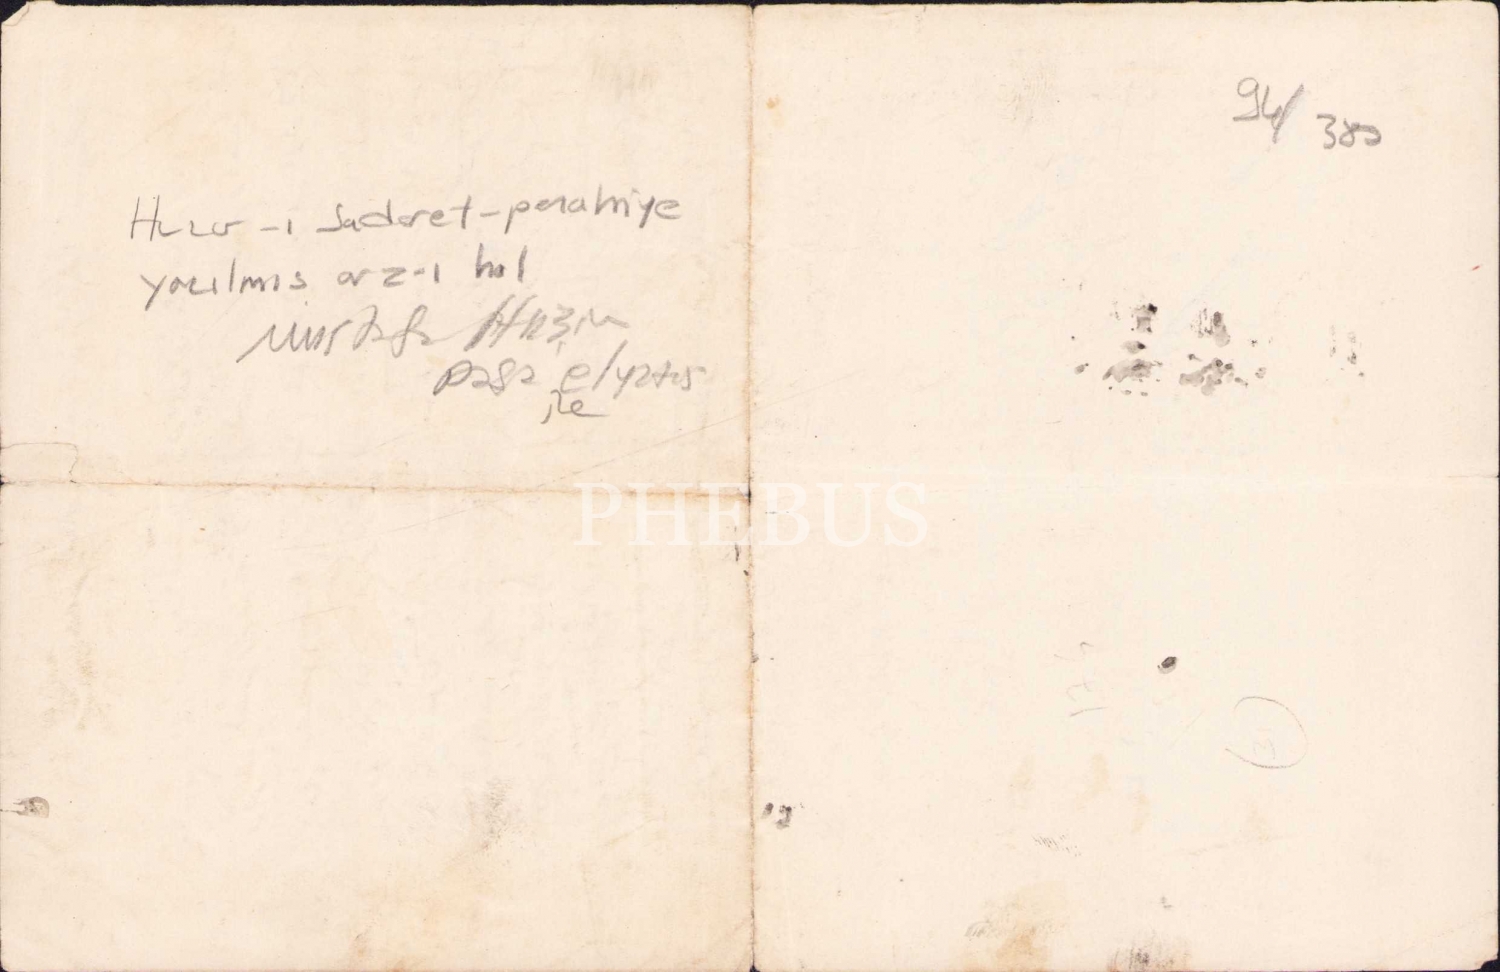 Huzur-ı Sadaret-penahiye
yazılmıs arz-ı hal
Mustafa Hazım
pasa elyazısı
ile
94/ 380
PHEBUS